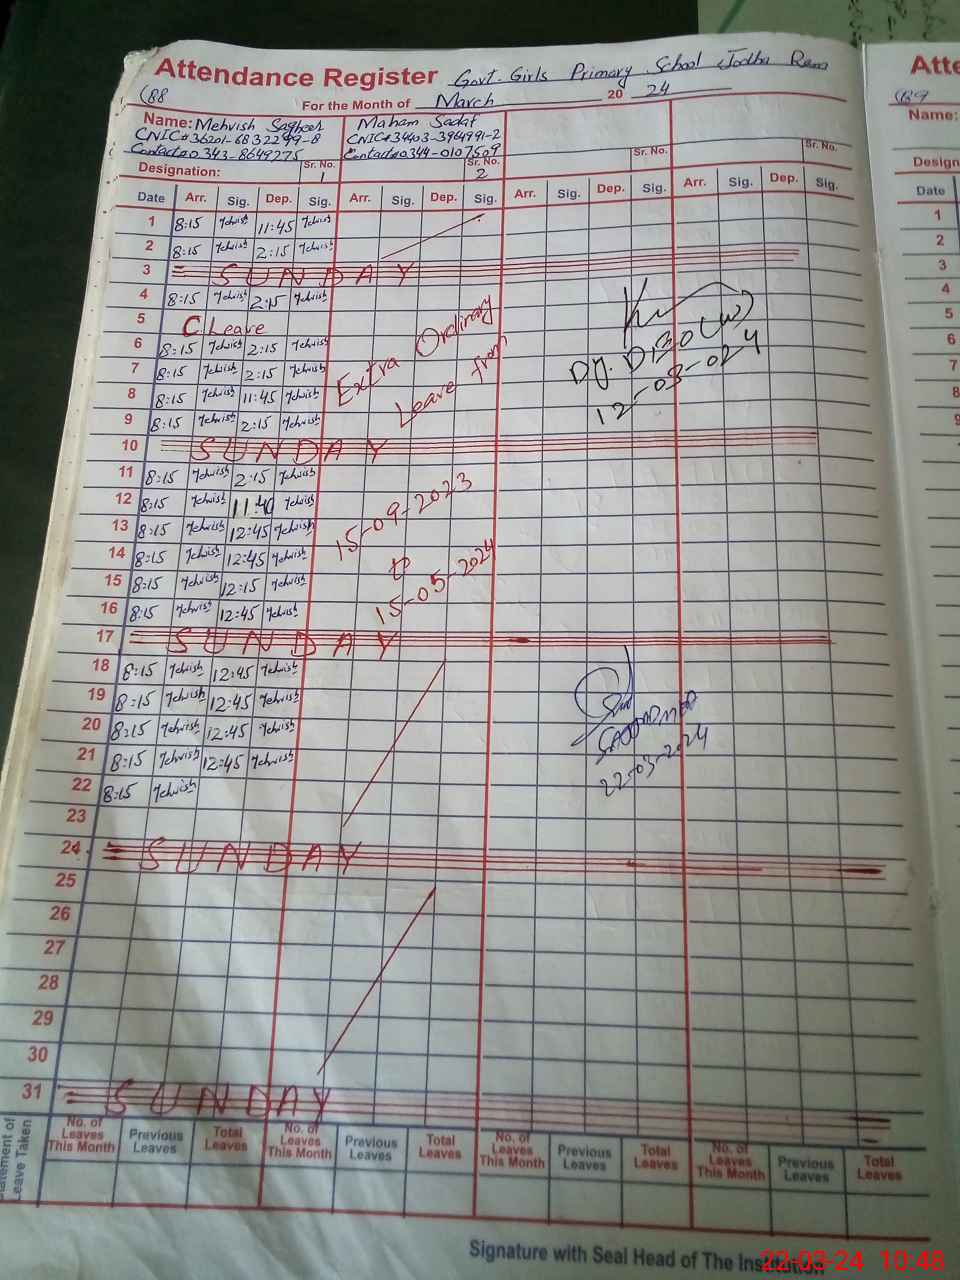 Attendance Register Govt. Girls Primary School Jodha Ram
(88
For the Month of March 20 24
Name: Mehvish Sagheer Maham Sadat
CNIC# 36201-6832299-8 CNIC# 34403-3964991-2
Contact# 0343-8649275 Contact# 0344-0107509
Designation: Sr. No. 1 Sr. No. 2 Sr. No. Sr. No.
Date Arr. Sig. Dep. Sig. Arr. Sig. Dep. Sig. Arr. Sig. Dep. Sig. Arr. Sig. Dep. Sig.
1 8:15 11:45
2 8:15 2:15
3 SUNDAY
4 8:15 2:15
5 C Leave
6 8:15 2:15
7 8:15 2:15
8 8:15 11:45
9 8:15 2:15
Extra Ordinary
Leave from
Dy. DEO (W)
12-03-024
10 SUNDAY
11 8:15 2:15
12 8:15 11:40
13 8:15 12:45
14 8:15 12:45
15 8:15 12:15
16 8:15 12:45
15-09-2023
to
15-05-2024
17 SUNDAY
18 8:15 12:45
19 8:15 12:45
20 8:15 12:45
21 8:15 12:45
22 8:15
22-03-2024
23
24 SUNDAY
25
26
27
28
29
30
31 SUNDAY
Statement of Leave Taken
No. of Leaves This Month Previous Leaves Total Leaves No. of Leaves This Month Previous Leaves Total Leaves No. of Leaves This Month Previous Leaves Total Leaves No. of Leaves This Month Previous Leaves Total Leaves
Signature with Seal Head of The Institution
22-03-24 10:48
Atte
(89
Name:
Design
Date
1
2
3
4
5
6
7
8
9